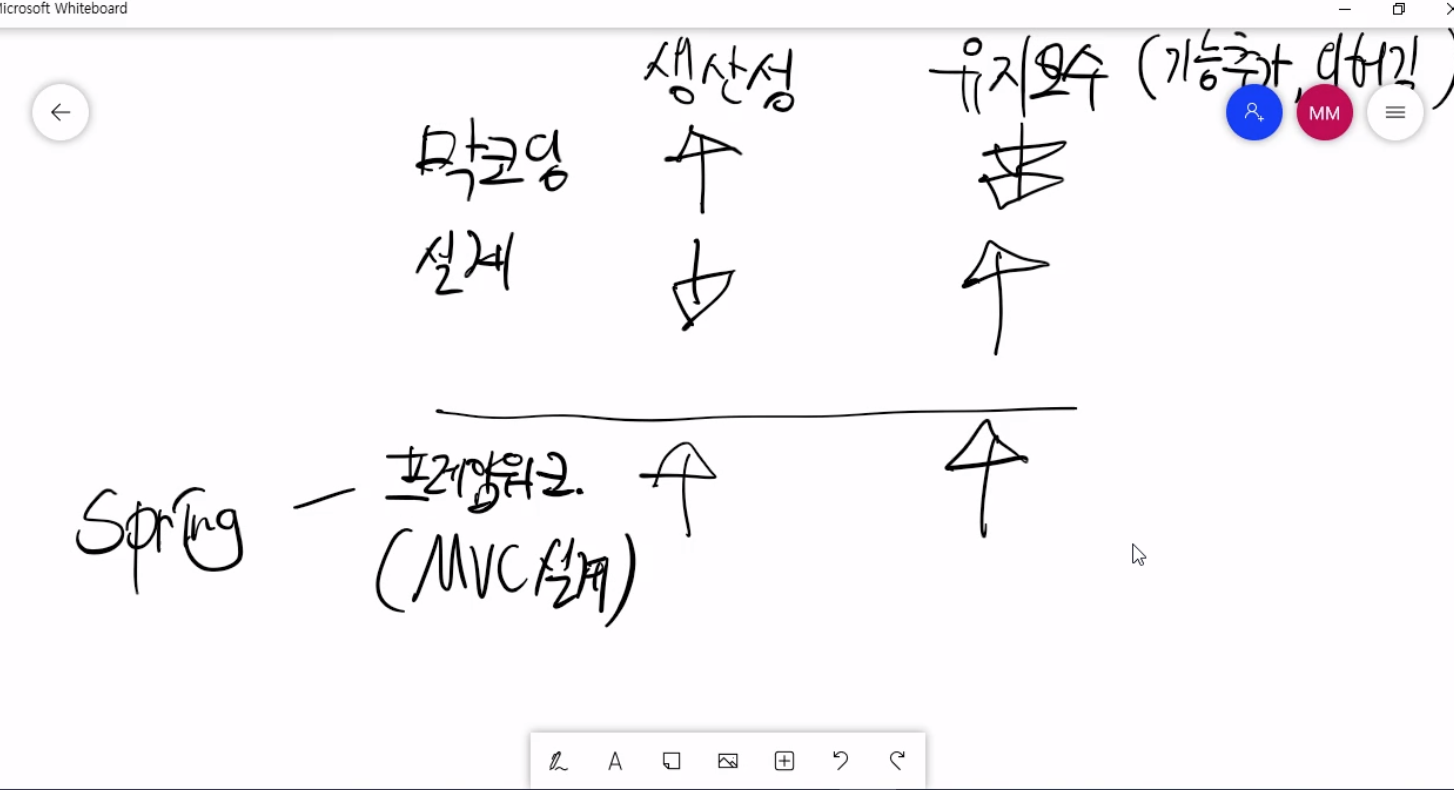 Microsoft Whiteboard
생산성 유지보수 (기능추가,
MM
막코딩
설계
Spring — 프레임워크.
(MVC 설계)
A